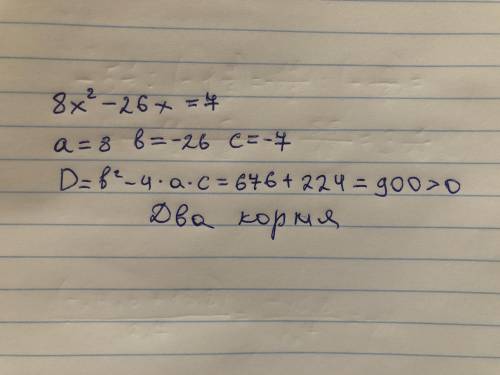 8x² - 26x = 7
a = 8 в = -26 c = -7
D = в² - 4 · a · c = 676 + 224 = 900 > 0
Два корня